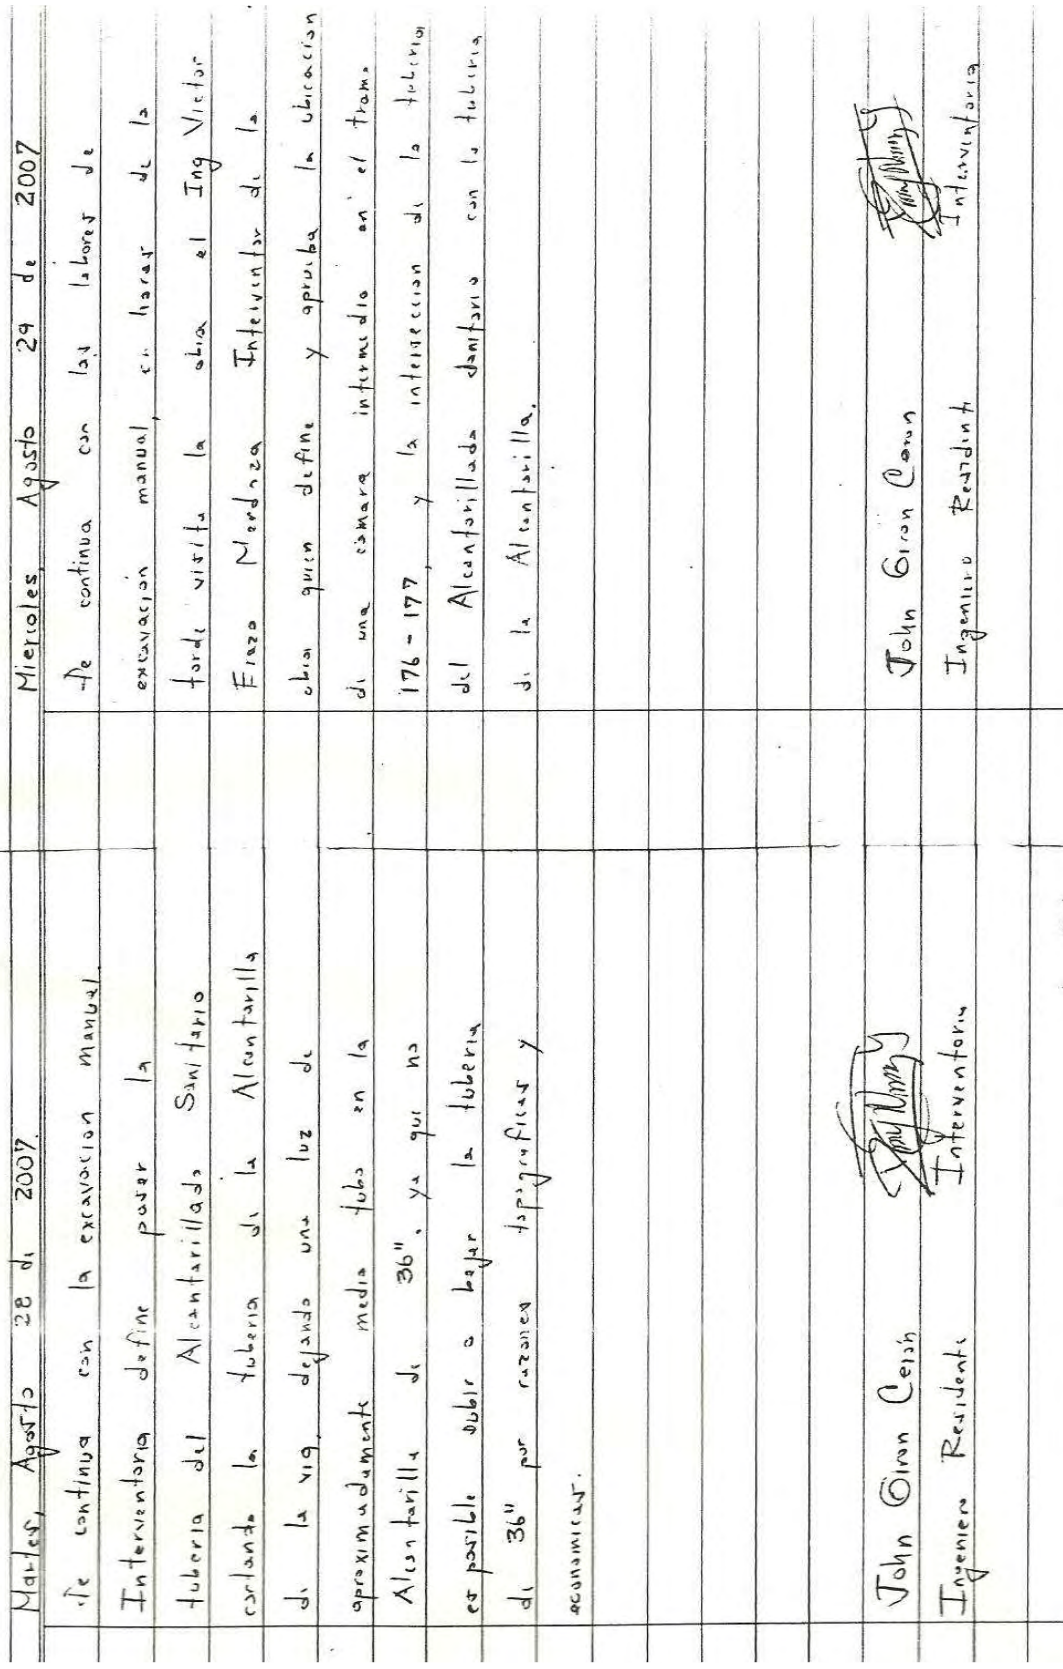 Martes, Agosto 28 de 2007.
Se continua con la excavacion manual.
Interventoria define pasar la
tuberia del Alcantarillado Sanitario
cortando la tuberia de la Alcantarilla
de la via, dejando una luz de
aproximadamente medio tubo en la
Alcantarilla de 36", ya que no
es posible subir o bajar la tuberia
de 36" por razones topograficas y
economicas.
John Giron Ceron
Ingeniero Residente
Interventoria
Miercoles, Agosto 29 de 2007
Se continua con las labores de
excavacion manual, en horas de la
tarde visita la obra el Ing Victor
Erazo Mendoza Interventor de la
obra quien define y aprueba la ubicacion
de una camara intermedia en el tramo
176 - 177, y la interseccion de la tuberia
del Alcantarillado Sanitario con la tuberia
de la Alcantarilla.
John Giron Ceron
Ingeniero Residente
Interventoria